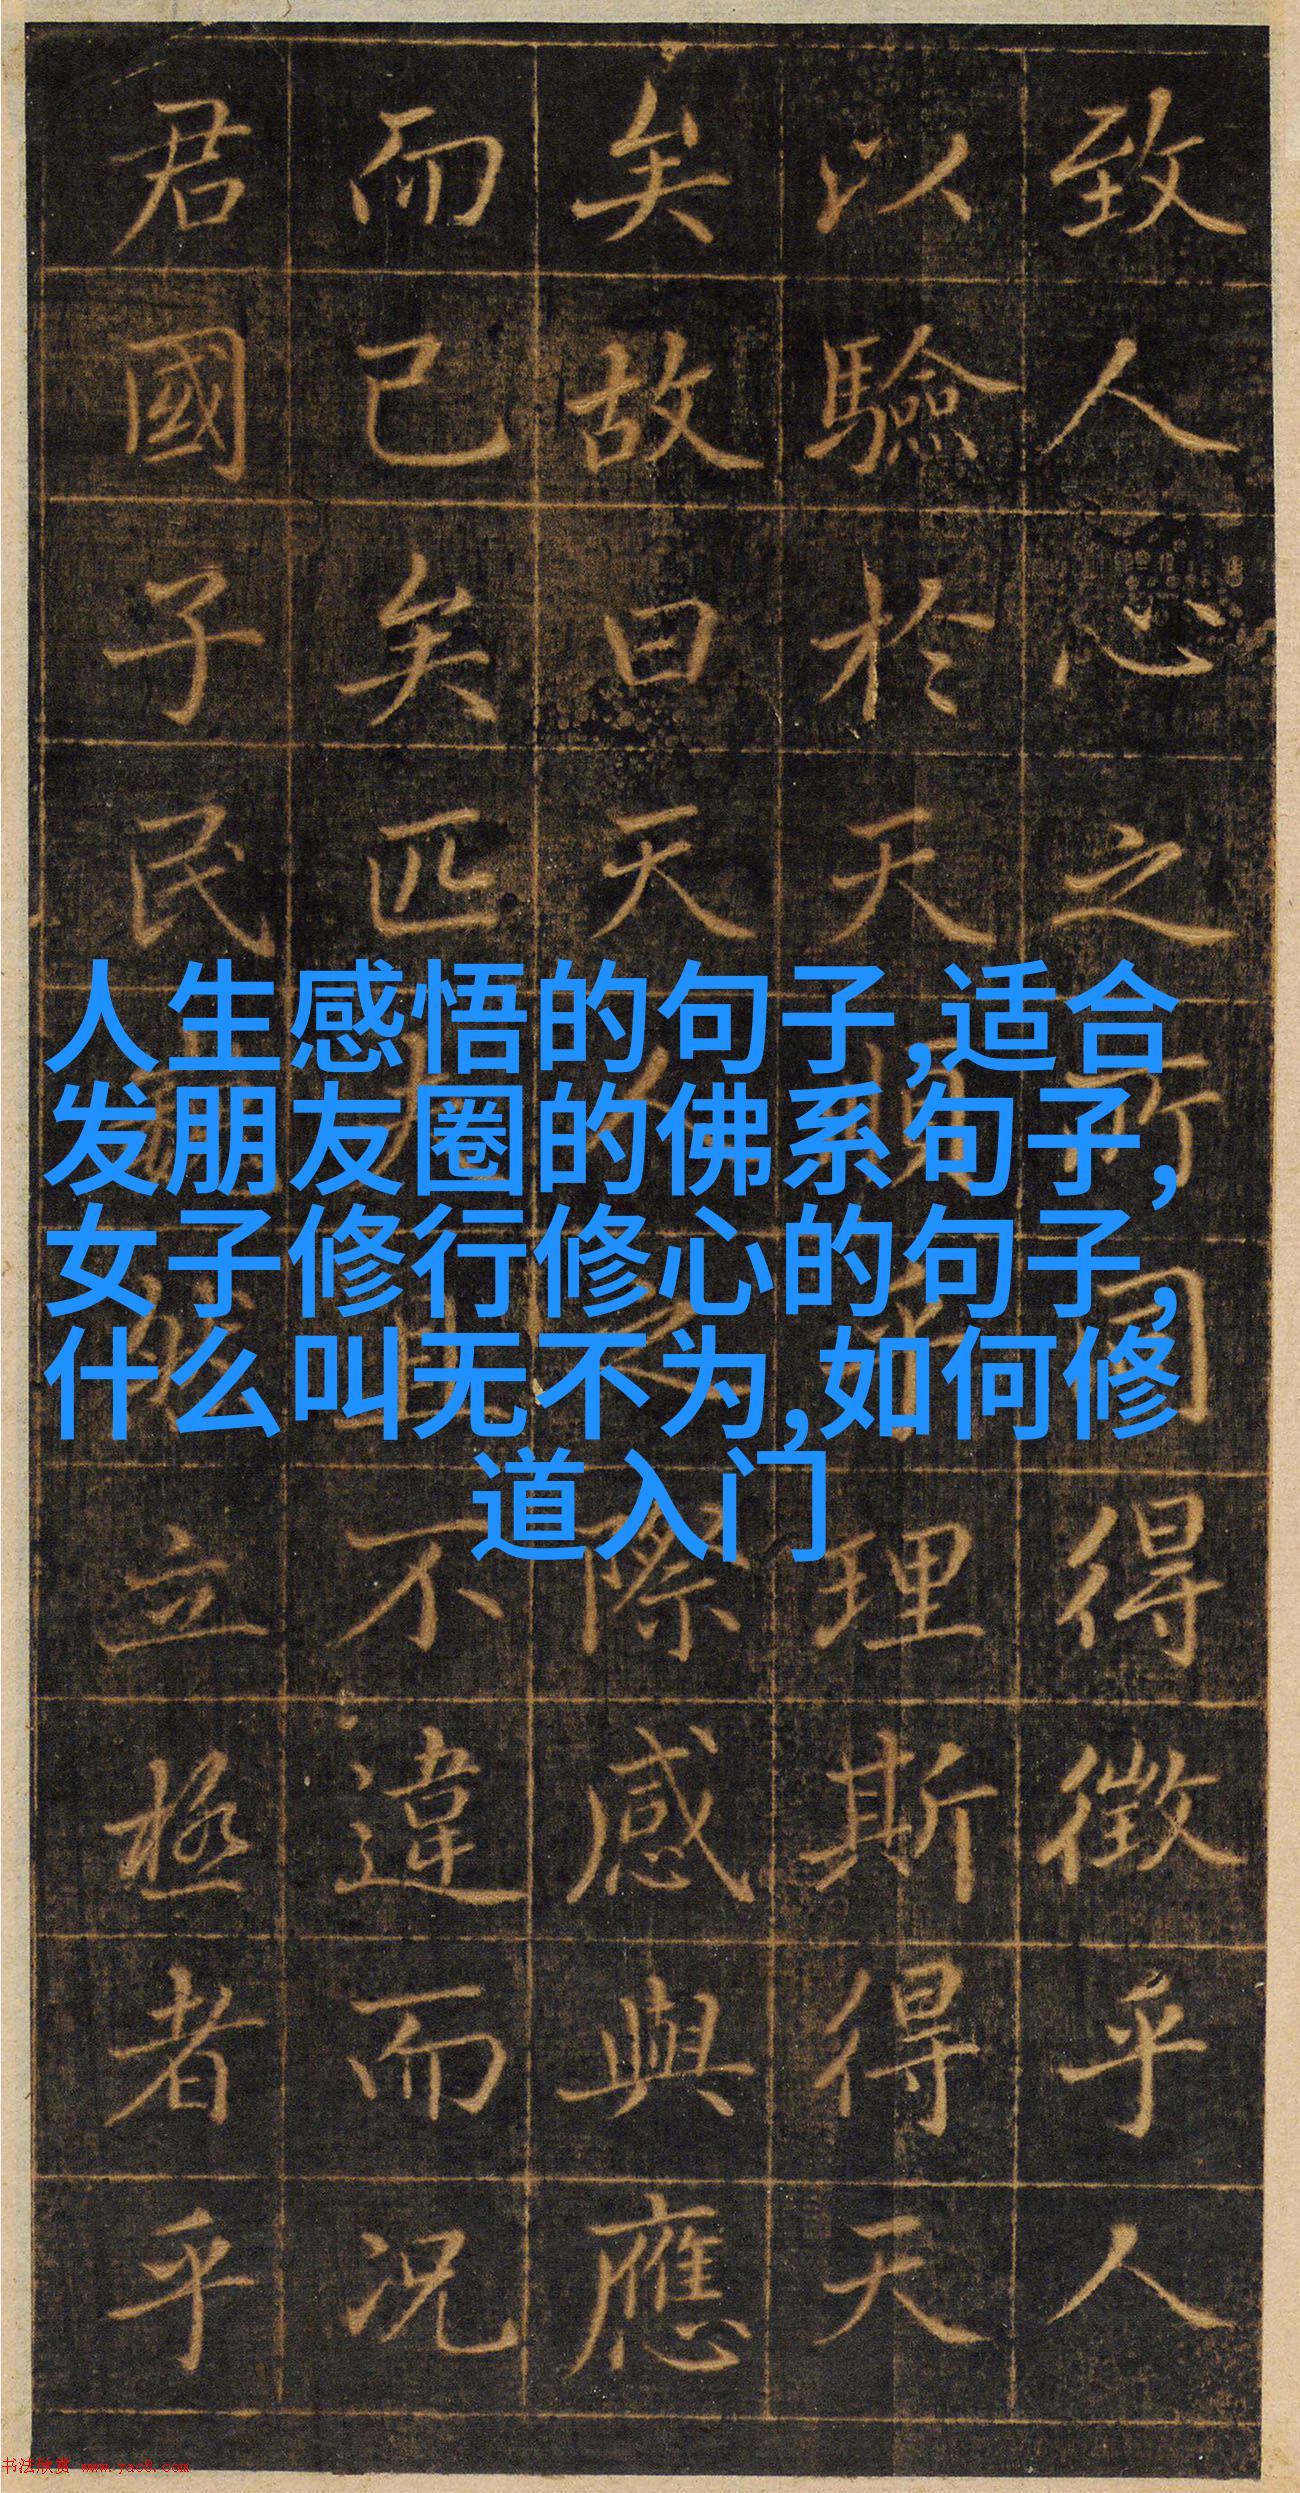 致人心之所同得徵乎人
以驗於天順乎理斯得天
矣故曰天人之際感與應
而已矣匹夫且不違而况
君國子民立極者乎
人生感悟的句子,适合
发朋友圈的佛系句子,
女子修行修心的句子,
什么叫无不为,如何修
道入门
书法欣赏 www.yac8.com